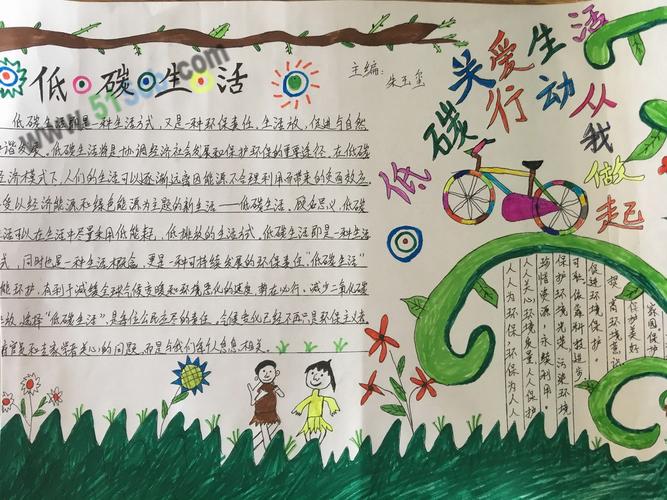 低碳生活
主编：
低碳生活即是一种生活方式，又是一种环保责任，生活放，促进与自然
谐发展。低碳生活将是协调经济社会发展和保护环保的重要途径。在低碳
经济模式下，人们的生活可以逐渐远离因能源不合理利用而带来的负面效应
受以经济能源和绿色能源为主题的新生活——低碳生活。顾名思义，低碳
生活可以在生活中尽量采用低能耗，低排放的生活方式，低碳生活即是一种生活
式，同时也是一种生活概念，更是一种可持续发展的环保责任"低碳生活"
能环护，有利于减缓全球气候变暖和环境恶化的速度，势在必行。减少二氧化碳
放，选择"低碳生活"，是每位公民应尽的责任。气候变化已经不再只是环保主义者，
官员和专家学者关心的问题，而是与我们每个人息息相关。
关爱生活
低碳行动
从我做起
家园保护
保护美好
提高环境意
促进环境保护。
依靠科技进步
保护环境光荣污染环境
珍惜资源，永续利用。
人人关心环境质量人人保护
人人为环保，环保为人人